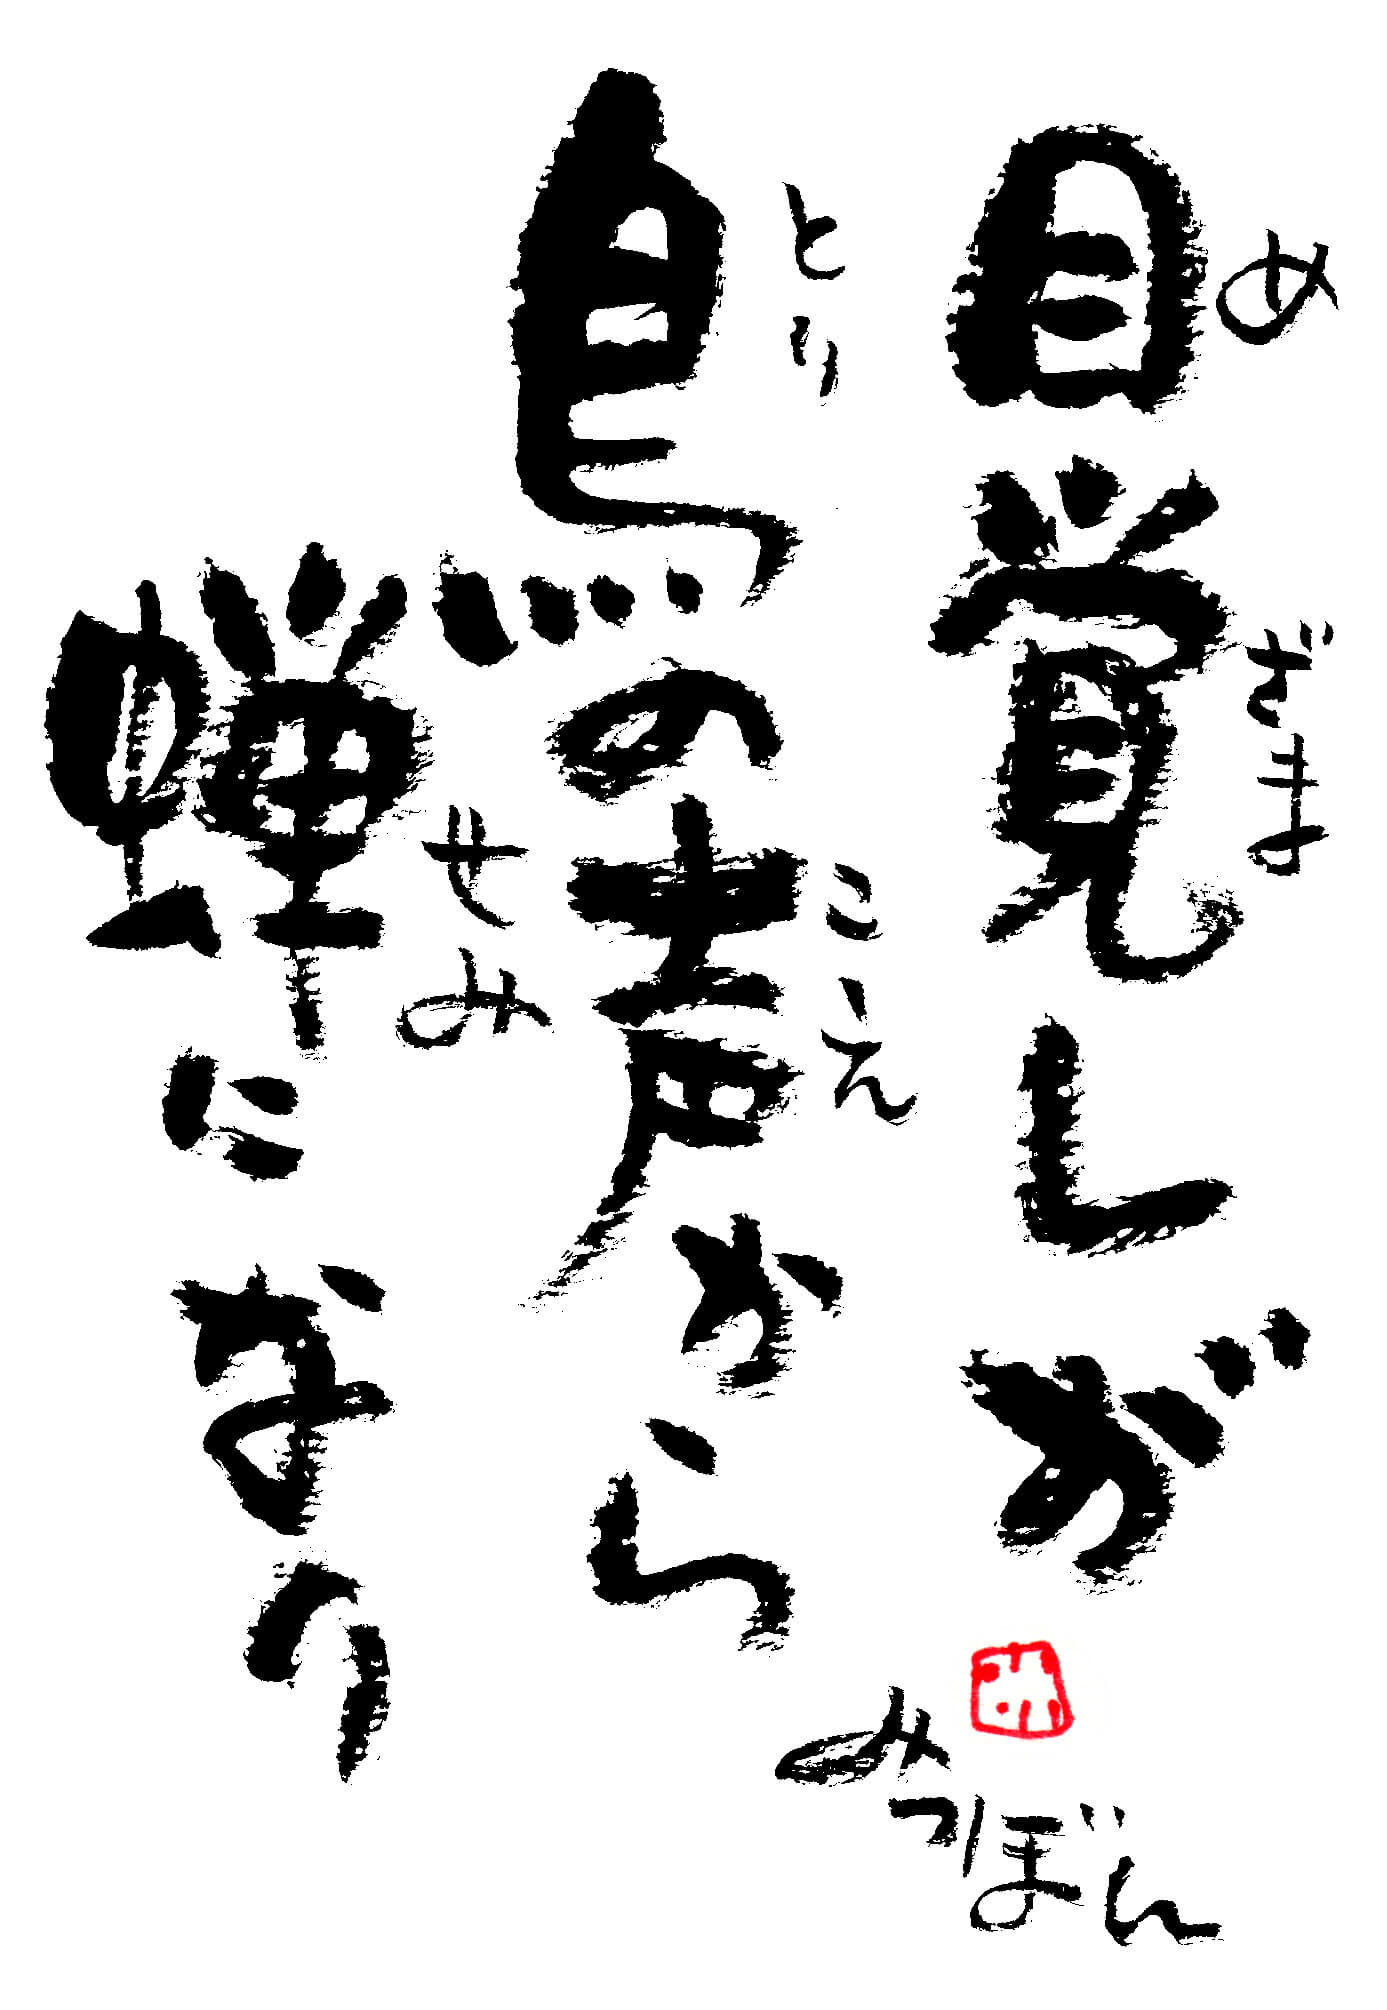 目覚しが
め
ざま
鳥の声から
とり
こえ
蝉になり
せみ
みつぼん